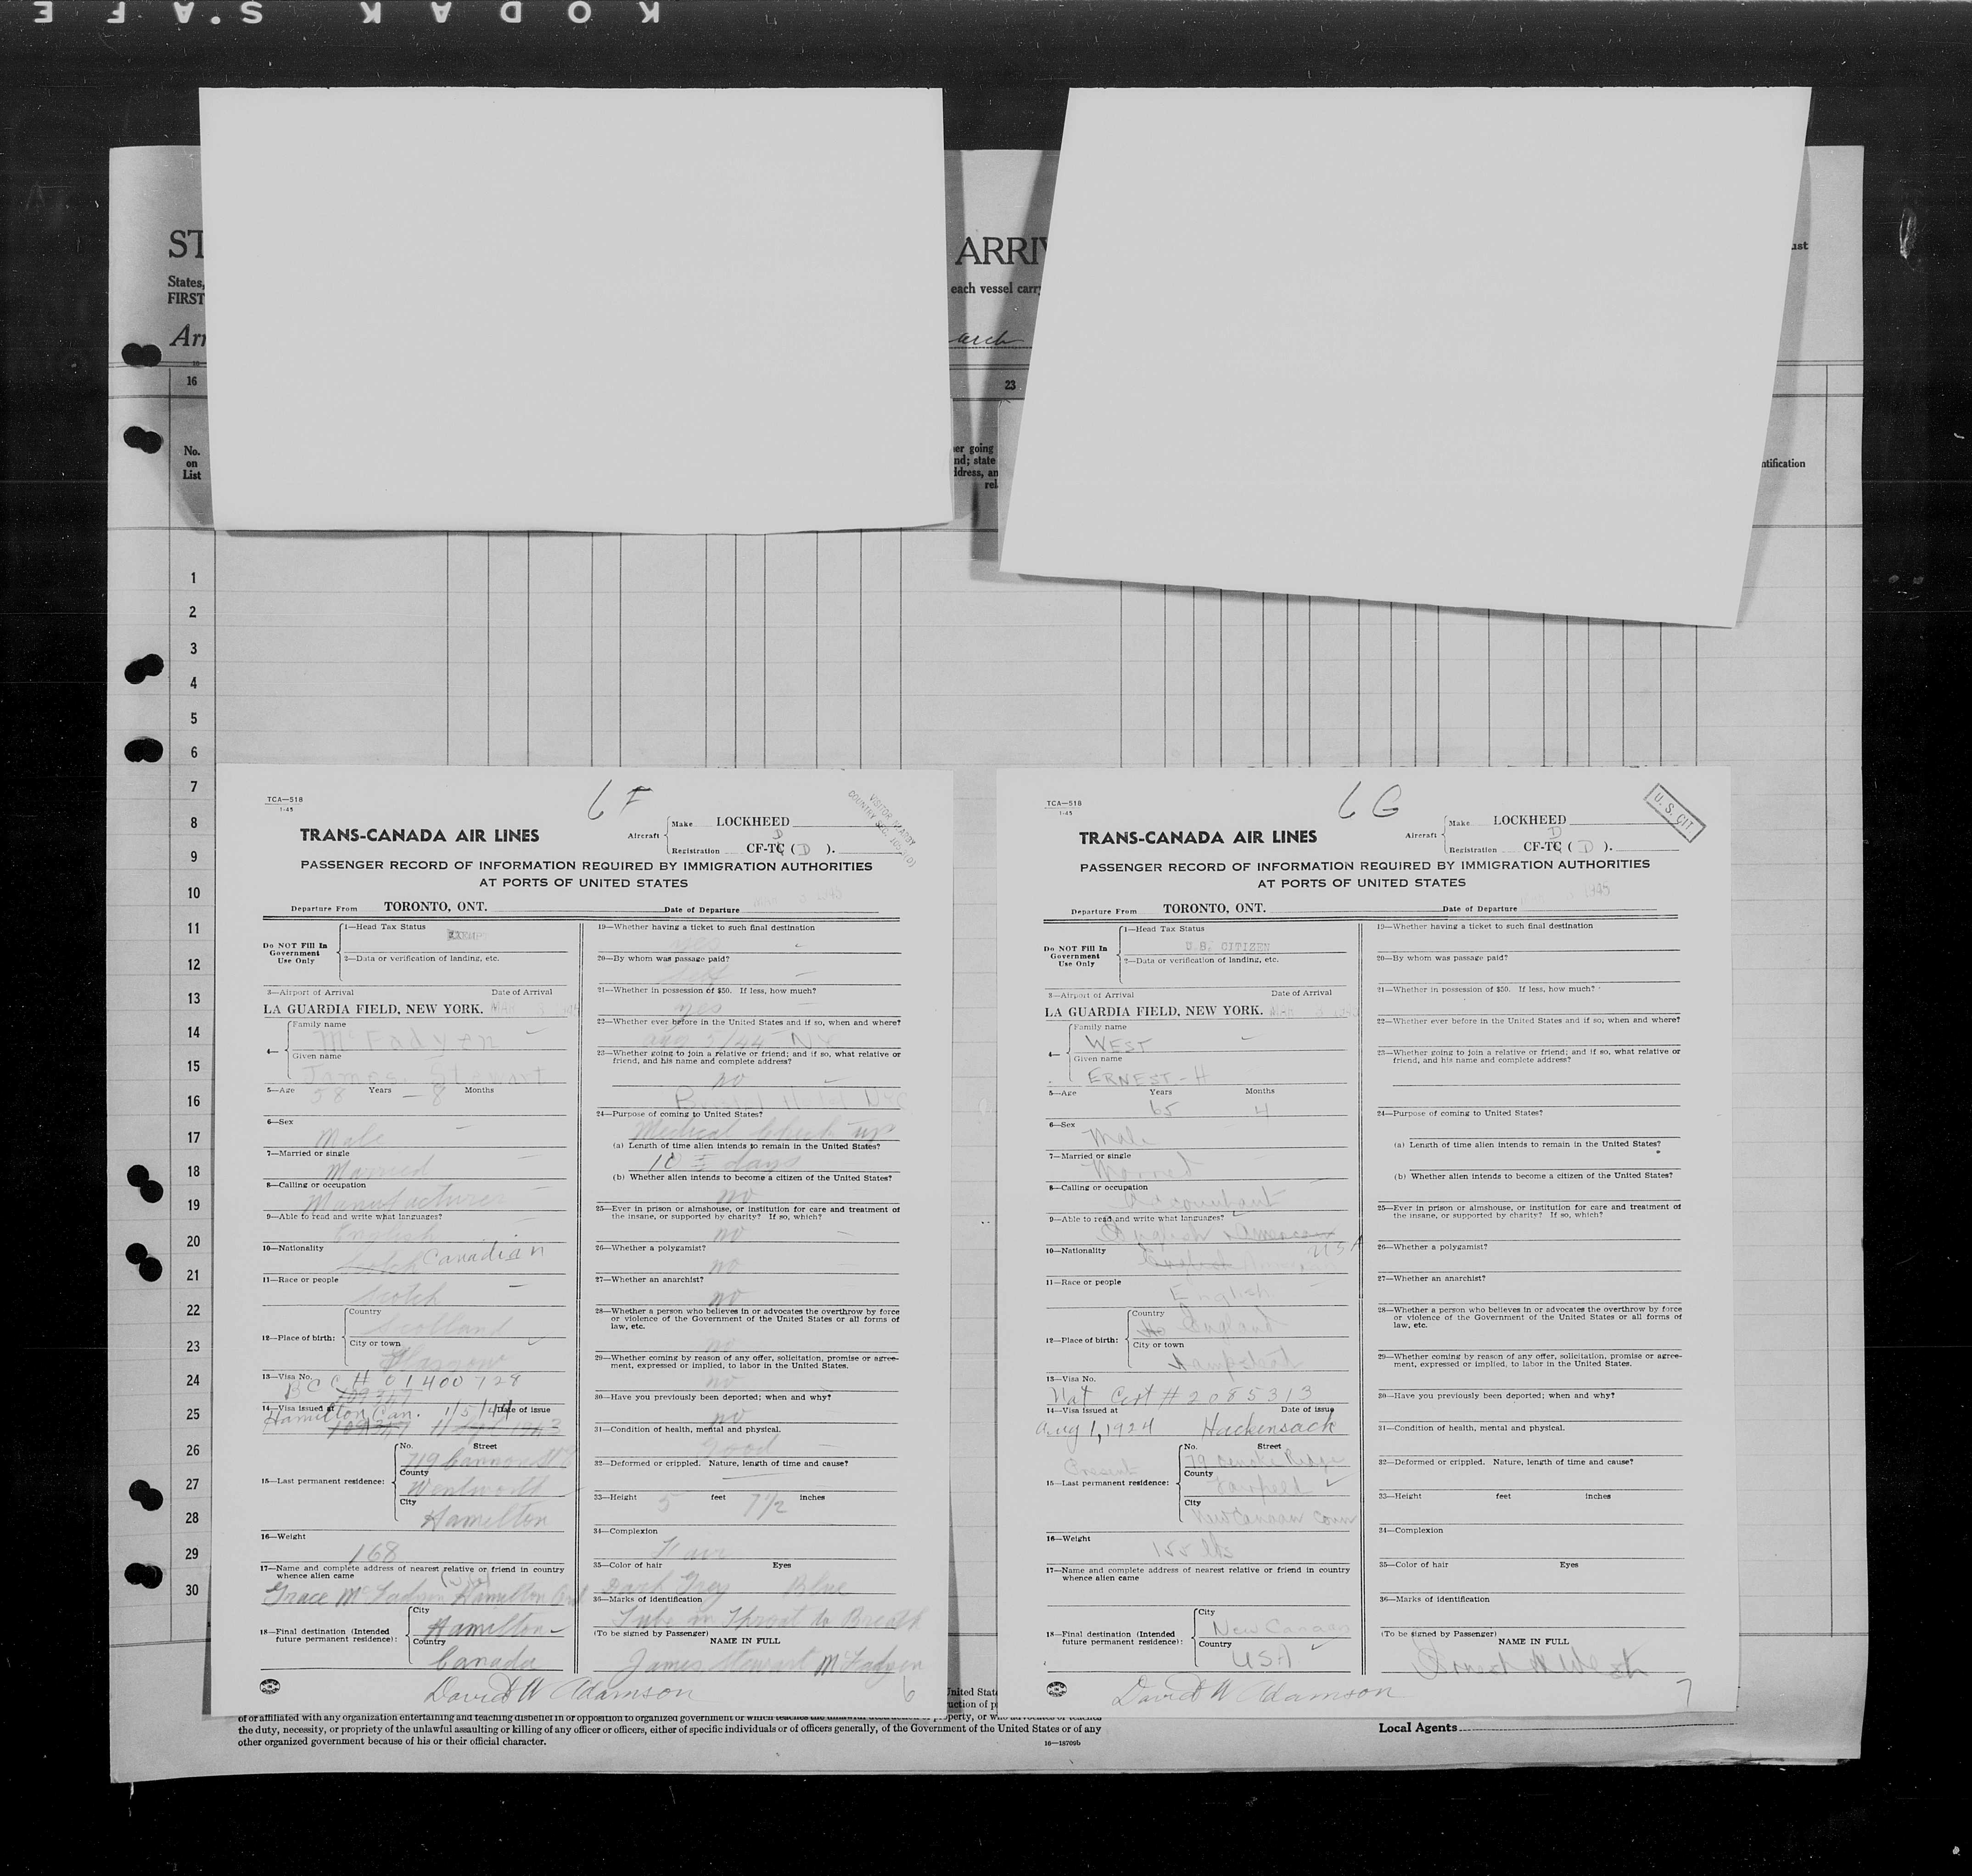 KODAK S.AFE
ST
ARRIV
ust
States,
FIRST
each vessel carry
Arr
arch
16
23
No.
on
List
er going
nd; state
ldress, an
rel
ntification
1
2
3
4
5
6
7
8
9
10
11
12
13
14
15
16
17
18
19
20
21
22
23
24
25
26
27
28
29
30
TCA—518
1-45
6 F
TRANS-CANADA AIR LINES
Aircraft
Make LOCKHEED
D
Registration CF-TC ( D ).
PASSENGER RECORD OF INFORMATION REQUIRED BY IMMIGRATION AUTHORITIES
AT PORTS OF UNITED STATES
Departure From TORONTO, ONT. Date of Departure 1945
Do NOT Fill In
Government
Use Only
1—Head Tax Status
2—Data or verification of landing, etc.
3—Airport of Arrival Date of Arrival
LA GUARDIA FIELD, NEW YORK. MAR
4—
Family name
McFadyen
Given name
James Stewart
5—Age 58 Years — 8 Months
6—Sex
Male
7—Married or single
Married
8—Calling or occupation
Manufacturer
9—Able to read and write what languages?
English
10—Nationality
Scotch Canadian
11—Race or people
Scotch
12—Place of birth:
Country
Scotland
City or town
Glasgow
13—Visa No.
BCC # 01400729
14—Visa issued at Date of issue
Hamilton Can. 1/5/44
15—Last permanent residence:
No. Street
719 Cannon St E
County
Wentworth
City
Hamilton
16—Weight
168
17—Name and complete address of nearest relative or friend in country
whence alien came
(wife)
Grace McFadyen Hamilton Ont
18—Final destination (Intended
future permanent residence):
City
Hamilton
Country
Canada
19—Whether having a ticket to such final destination
yes
20—By whom was passage paid?
21—Whether in possession of $50. If less, how much?
yes
22—Whether ever before in the United States and if so, when and where?
23—Whether going to join a relative or friend; and if so, what relative or
friend, and his name and complete address?
no
Hotel NYC
24—Purpose of coming to United States?
Medical check up
(a) Length of time alien intends to remain in the United States?
10 days
(b) Whether alien intends to become a citizen of the United States?
no
25—Ever in prison or almshouse, or institution for care and treatment of
the insane, or supported by charity? If so, which?
no
26—Whether a polygamist?
no
27—Whether an anarchist?
no
28—Whether a person who believes in or advocates the overthrow by force
or violence of the Government of the United States or all forms of
law, etc.
no
29—Whether coming by reason of any offer, solicitation, promise or agree-
ment, expressed or implied, to labor in the United States.
no
30—Have you previously been deported; when and why?
no
31—Condition of health, mental and physical.
Good
32—Deformed or crippled. Nature, length of time and cause?
33—Height 5 feet 7 1/2 inches
34—Complexion
Fair
35—Color of hair Eyes
Dark Grey Blue
36—Marks of identification
Tube in Throat to Breath
(To be signed by Passenger)
NAME IN FULL
James Stewart McFadyen
David W Adamson
6
TCA—518
1-45
6 G
U. S. CIT
TRANS-CANADA AIR LINES
Aircraft
Make LOCKHEED
D
Registration CF-TC ( D ).
PASSENGER RECORD OF INFORMATION REQUIRED BY IMMIGRATION AUTHORITIES
AT PORTS OF UNITED STATES
Departure From TORONTO, ONT. Date of Departure 1945
Do NOT Fill In
Government
Use Only
1—Head Tax Status
U.S. CITIZEN
2—Data or verification of landing, etc.
3—Airport of Arrival Date of Arrival
LA GUARDIA FIELD, NEW YORK. MAR
4—
Family name
WEST
Given name
ERNEST - H
5—Age Years Months
65 4
6—Sex
Male
7—Married or single
Married
8—Calling or occupation
Accountant
9—Able to read and write what languages?
English American
10—Nationality
USA
11—Race or people
English
12—Place of birth:
Country
England
City or town
Hampstead
13—Visa No.
Nat Cert # 2085313
14—Visa issued at Date of issue
Aug 1, 1924 Hackensack
Present
15—Last permanent residence:
No. Street
County
Fairfield
City
New Canaan Conn
16—Weight
155 lbs
17—Name and complete address of nearest relative or friend in country
whence alien came
18—Final destination (Intended
future permanent residence):
City
New Canaan
Country
USA
19—Whether having a ticket to such final destination
20—By whom was passage paid?
21—Whether in possession of $50. If less, how much?
22—Whether ever before in the United States and if so, when and where?
23—Whether going to join a relative or friend; and if so, what relative or
friend, and his name and complete address?
24—Purpose of coming to United States?
(a) Length of time alien intends to remain in the United States?
(b) Whether alien intends to become a citizen of the United States?
25—Ever in prison or almshouse, or institution for care and treatment of
the insane, or supported by charity? If so, which?
26—Whether a polygamist?
27—Whether an anarchist?
28—Whether a person who believes in or advocates the overthrow by force
or violence of the Government of the United States or all forms of
law, etc.
29—Whether coming by reason of any offer, solicitation, promise or agree-
ment, expressed or implied, to labor in the United States.
30—Have you previously been deported; when and why?
31—Condition of health, mental and physical.
32—Deformed or crippled. Nature, length of time and cause?
33—Height feet inches
34—Complexion
35—Color of hair Eyes
36—Marks of identification
(To be signed by Passenger)
NAME IN FULL
Ernest H West
David W Adamson
7
nited State
uction of p
of or affiliated with any organization entertaining and teaching disbelief in or opposition to organized government or which teaches the
the duty, necessity, or propriety of the unlawful assaulting or killing of any officer or officers, either of specific individuals or of officers generally, of the Government of the United States or of any
other organized government because of his or their official character.
16—18709b
Local Agents